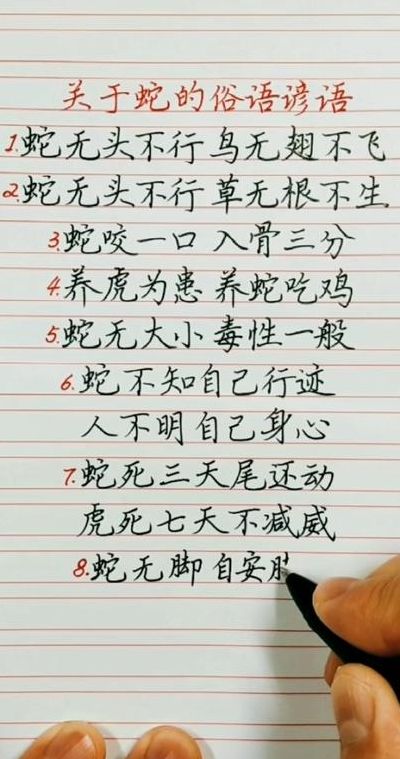 关于蛇的俗语谚语
1.蛇无头不行 鸟无翅不飞
2.蛇无头不行 草无根不生
3.蛇咬一口 入骨三分
4.养虎为患 养蛇吃鸡
5.蛇无大小 毒性一般
6.蛇不知自己行迹
人不明自己身心
7.蛇死三天尾还动
虎死七天不减威
8.蛇无脚自安